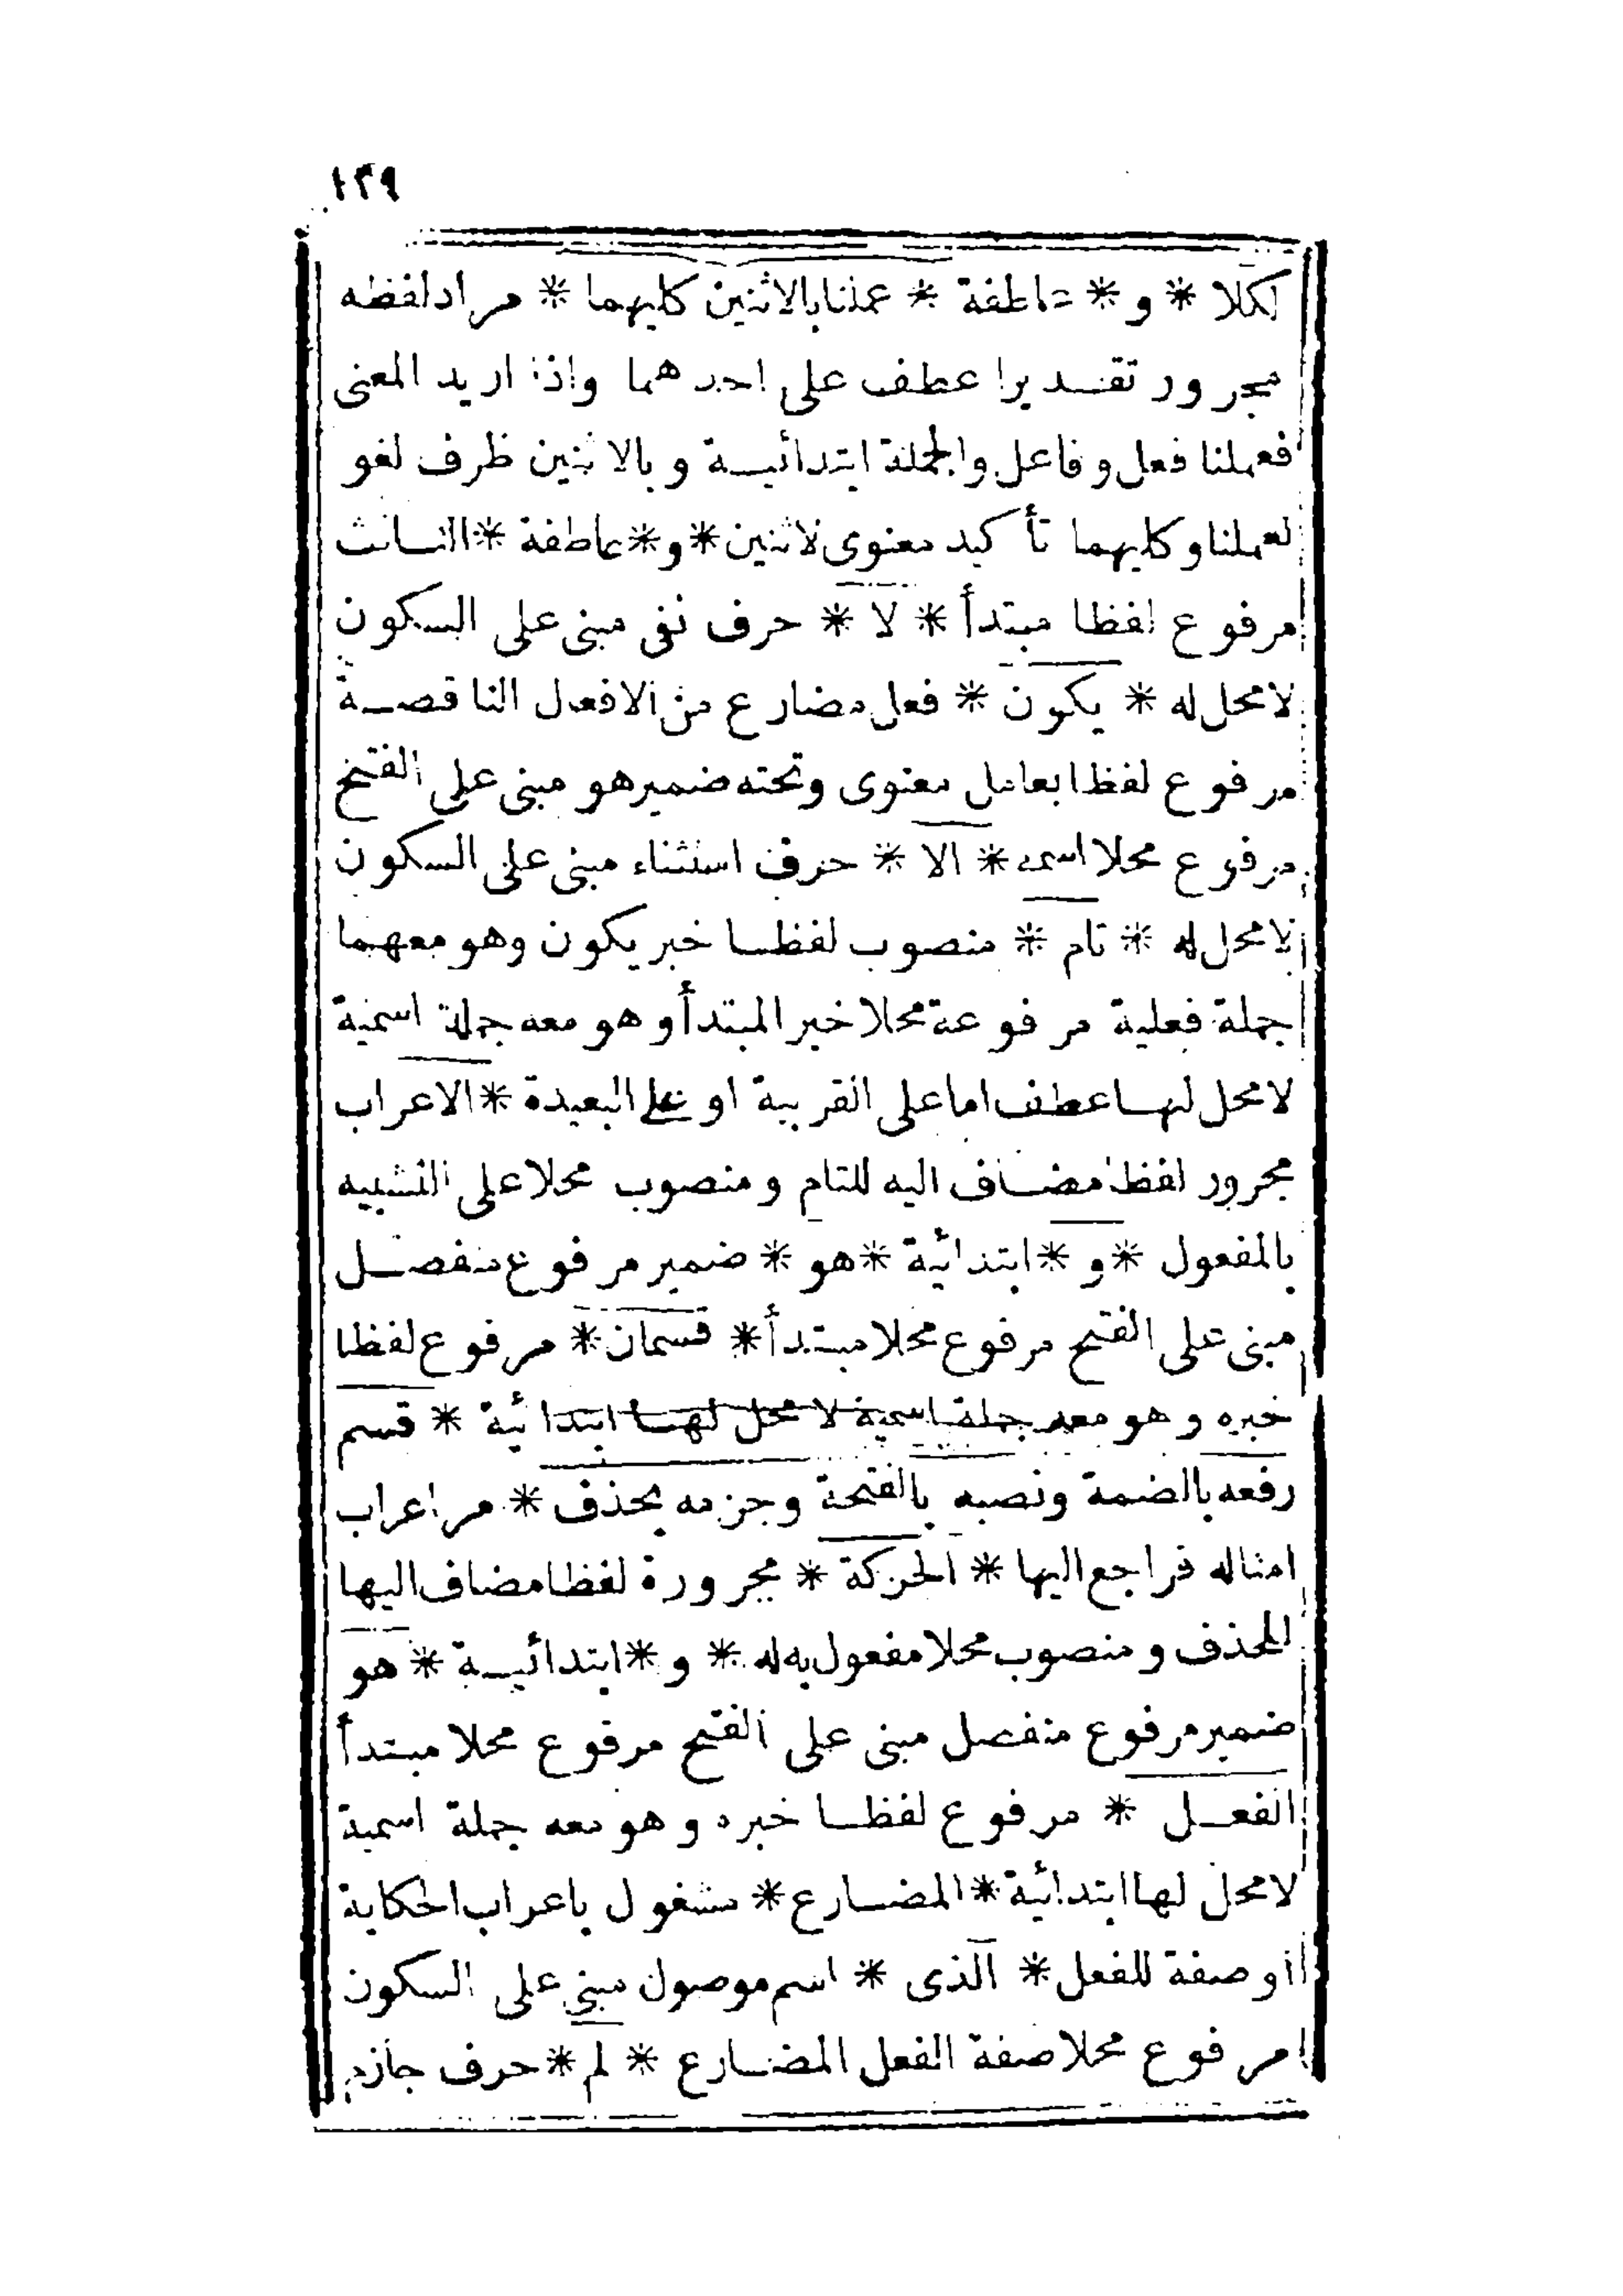 ١٢٩
لكلا * و * عاطفة * عملنا بالاثنين كليهما * مراد لفظه
مجرور تقديرا عطف على احدهما واذا اريد المعنى
فعملنا فعل وفاعل والجملة ابتدائيـة وبالاثنين ظرف لغو
لعملنا وكليهما تأكيد معنوى لاثنين * و * عاطفة * الثـالث
مرفوع لفظا مبتدأ * لا * حرف نفى مبنى على السكون
لا محل له * يكون * فعل مضارع من الافعال الناقصـة
مرفوع لفظا بعامل معنوى وتحته ضمير هو مبنى على الفتح
مرفوع محلا اسمه * الا * حرف استثناء مبنى على السكون
لا محل له * تام * منصوب لفظـا خبر يكون وهو معهما
جملة فعلية مرفوعة محلا خبر المبتدأ وهو معه جملة اسمية
لا محل لهـا عطف اما على القريبة او على البعيدة * الاعراب
مجرور لفظا مضـاف اليه للتام ومنصوب محلا على التشبيه
بالمفعول * و * ابتدائية * هو * ضمير مرفوع منفصـل
مبنى على الفتح مرفوع محلا مبتدأ * قسمان * مرفوع لفظا
خبره وهو معه جملة اسمية لا محل لهـا ابتدائية * قسم
رفعه بالضمة ونصبه بالفتحة وجزمه بحذف * مر اعراب
امثاله فراجع اليها * الحركة * مجرورة لفظا مضاف اليها
للحذف ومنصوب محلا مفعول به له * و * ابتدائيـة * هو
ضمير مرفوع منفصل مبنى على الفتح مرفوع محلا مبتدأ
الفعـل * مرفوع لفظـا خبره وهو معه جملة اسمية
لا محل لها ابتدائية * المضـارع * مشغول باعراب الحكاية
او صفة للفعل * الذى * اسم موصول مبنى على السكون
مرفوع محلا صفة الفعل المضـارع * لم * حرف جازم